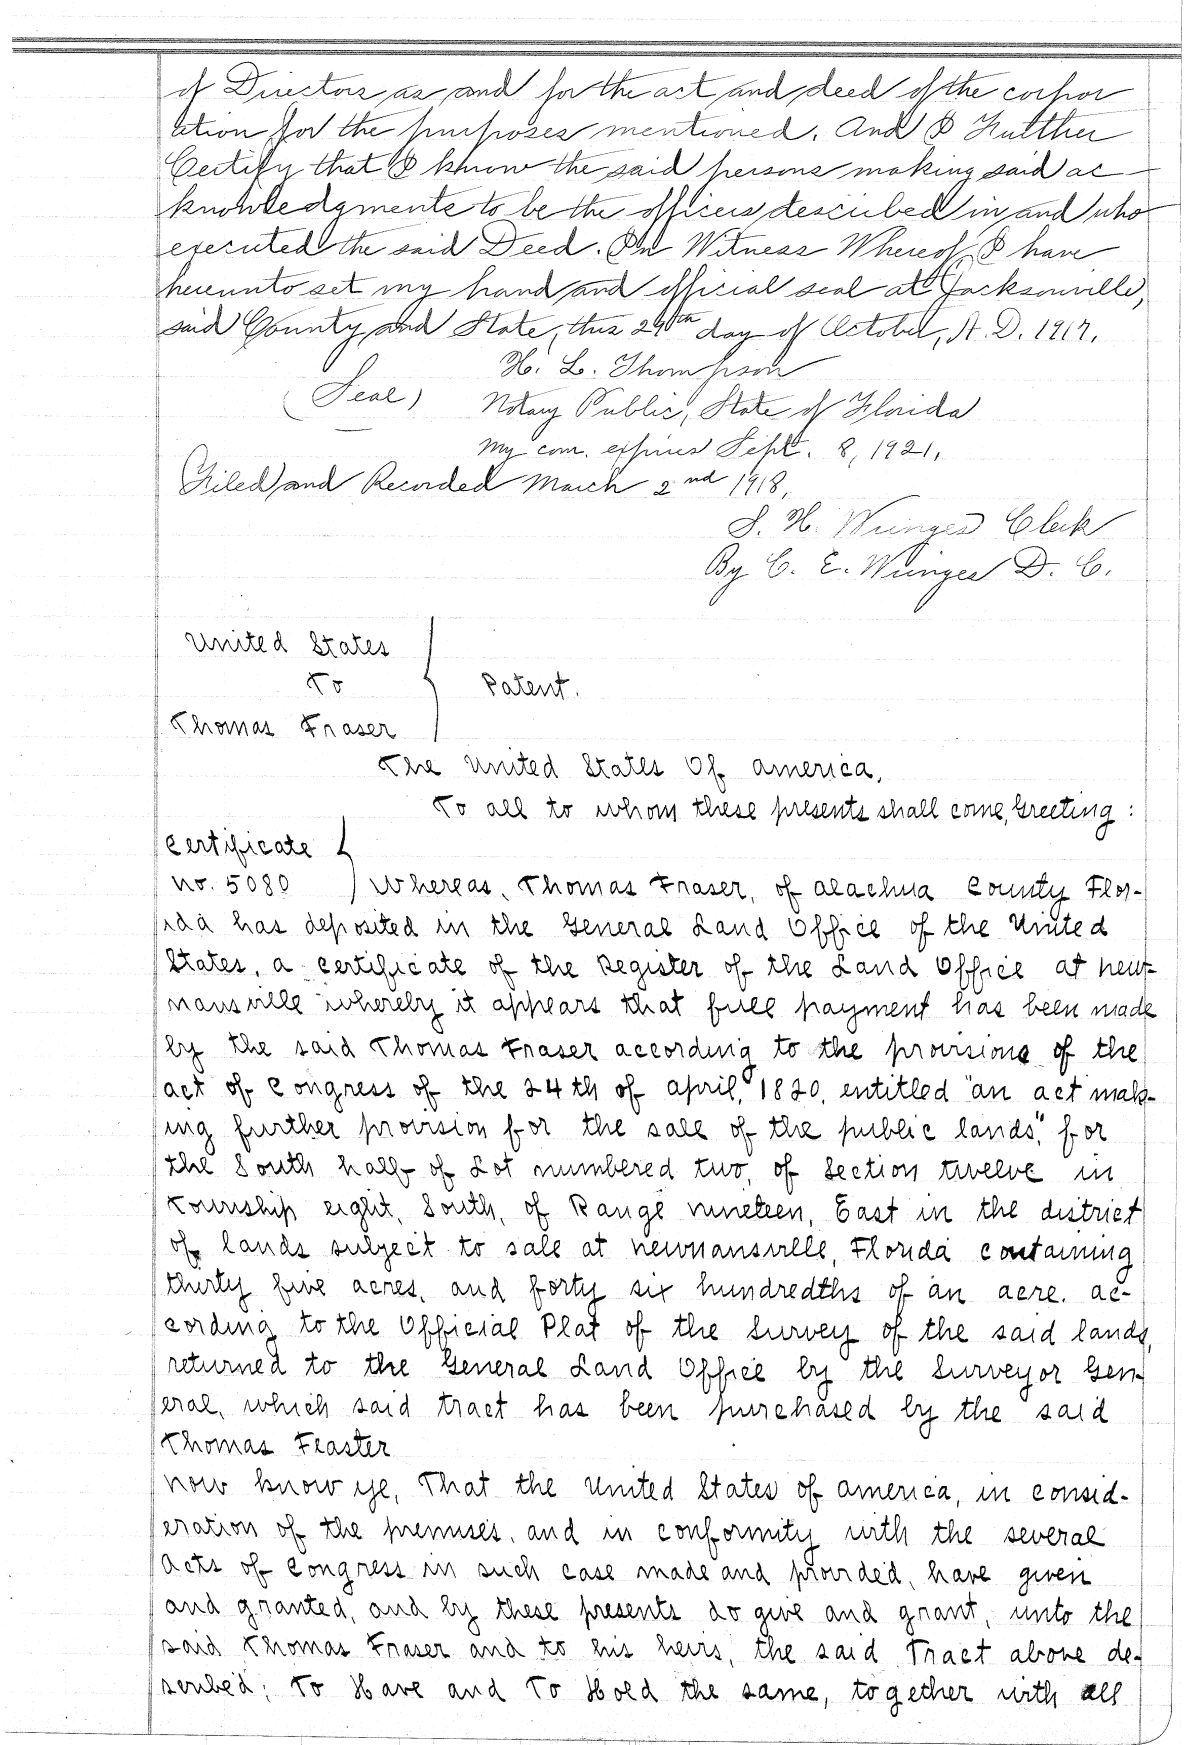 of Directors as and for the act and deed of the corpor
ation for the purposes mentioned. And I Further
Certify that I know the said persons making said ac-
knowledgments to be the officers described in and who
executed the said Deed. In Witness Whereof I have
hereunto set my hand and official seal at Jacksonville,
said County and State, this 29th day of October, A.D. 1917.
H. L. Thompson
(Seal) Notary Public, State of Florida
My com. expires Sept. 8, 1921.
Filed and Recorded March 2nd 1918,
S. H. Wienges Clerk
By C. E. Wienges D. C.
United States
To
Patent.
Thomas Fraser
The United States Of america,
To all to whom these presents shall come, Greeting:
Certificate
no. 5080 Whereas, Thomas Fraser, of alachua County Flor-
ida has deposited in the General Land Office of the United
States, a certificate of the Register of the Land Office at new-
nansville whereby it appears that full payment has been made
by the said Thomas Fraser according to the provisions of the
act of Congress of the 24th of april, 1820, entitled "an act mak-
ing further provision for the sale of the public lands," for
the South half of Lot numbered two, of Section twelve in
Township eight, South, of Range nineteen, East in the district
of lands subject to sale at newnansville, Florida containing
thirty five acres, and forty six hundredths of an acre. ac-
cording to the Official Plat of the Survey of the said lands,
returned to the General Land Office by the Surveyor Gen-
eral, which said tract has been purchased by the said
Thomas Feaster
now know ye, That the United States of america, in consid-
eration of the premises, and in conformity with the several
acts of Congress in such case made and provided, have given
and granted, and by these presents do give and grant, unto the
said Thomas Fraser and to his heirs, the said Tract above de-
scribed; To Have and To Hold the same, together with all